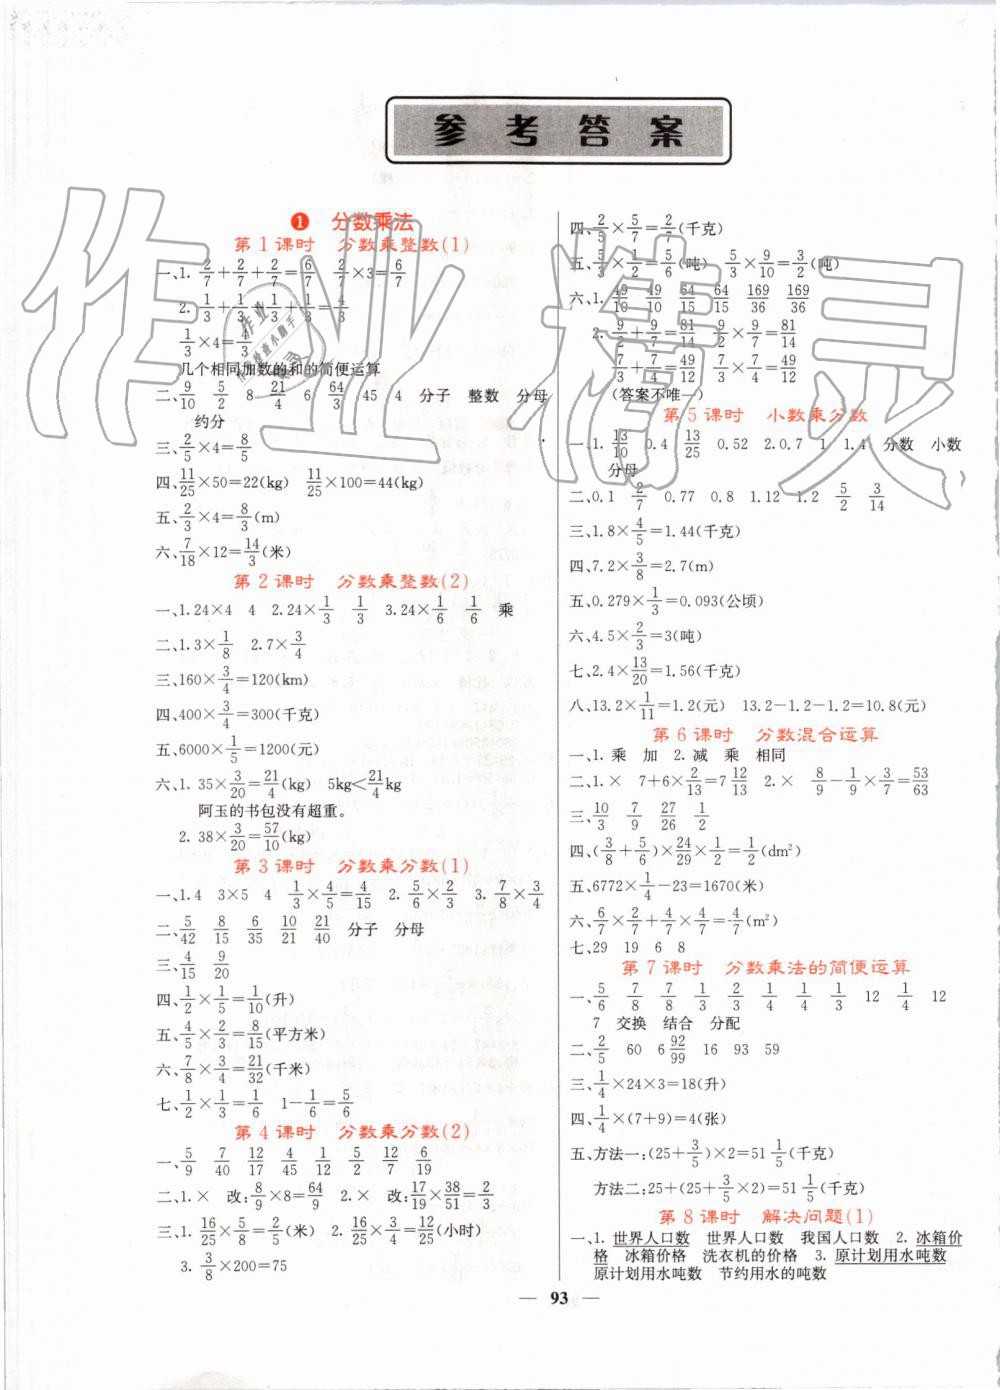 参考答案
❶ 分数乘法
第1课时 分数乘整数(1)
一、1. 2/7+2/7+2/7=6/7 2/7×3=6/7
2. 1/3+1/3+1/3+1/3=4/3
1/3×4=4/3
几个相同加数的和的简便运算
二、9/10 5/2 8 21/4 6 64/3 45 4 分子 整数 分母
约分
三、2/5×4=8/5
四、11/25×50=22(kg) 11/25×100=44(kg)
五、2/3×4=8/3(m)
六、7/18×12=14/3(米)
第2课时 分数乘整数(2)
一、1.24×4 4 2.24×1/3 1/3 3.24×1/6 1/6 乘
二、1.3×1/8 2.7×3/4
三、160×3/4=120(km)
四、400×3/4=300(千克)
五、6000×1/5=1200(元)
六、1.35×3/20=21/4(kg) 5kg<21/4kg
阿玉的书包没有超重。
2.38×3/20=57/10(kg)
第3课时 分数乘分数(1)
一、1.4 3×5 4 1/3×4/5=4/15 2.5/6×2/3 3.7/8×3/4
二、5/42 8/15 6/35 10/21 21/40 分子 分母
三、4/15 9/20
四、1/2×1/5=1/10(升)
五、4/5×2/3=8/15(平方米)
六、7/8×3/4=21/32(千米)
七、1/2×1/3=1/6 1-1/6=5/6
第4课时 分数乘分数(2)
一、5/9 7/40 12/17 4/45 1/12 5/2 12/7 6/19
二、1.× 改:8/9×8=64/9 2.× 改:17/19×38/51=2/3
三、1.16/25×5/8=2/5(米) 2.16/25×3/4=12/25(小时)
3.3/8×200=75
四、2/5×5/7=2/7(千克)
五、5/3×1/2=5/6(吨) 5/3×9/10=3/2(吨)
六、1.49/10 49/10 64/15 64/15 169/36 169/36
2.9/2+9/7=81/14 9/2×9/7=81/14
7/3+7/4=49/12 7/3×7/4=49/12
(答案不唯一)
第5课时 小数乘分数
一、1.13/10 0.4 13/25 0.52 2.0.7 1 1.4 分数 小数
分母
二、0.1 2/7 0.77 0.8 1.12 1.2 5/2 3/14
三、1.8×4/5=1.44(千克)
四、7.2×3/8=2.7(m)
五、0.279×1/3=0.093(公顷)
六、4.5×2/3=3(吨)
七、2.4×13/20=1.56(千克)
八、13.2×1/11=1.2(元) 13.2-1.2-1.2=10.8(元)
第6课时 分数混合运算
一、1.乘 加 2.减 乘 相同
二、1.× 7+6×2/13=7 12/13 2.× 8/9-1/9×3/7=53/63
三、10/3 7/9 27/26 1/2
四、(3/8+5/6)×24/29×1/2=1/2(dm²)
五、6772×1/4-23=1670(米)
六、6/7×2/7+4/7×4/7=4/7(m²)
七、29 19 6 8
第7课时 分数乘法的简便运算
一、5/6 7/8 7/8 1/3 2/3 1/4 1/4 1/3 12 1/4 12
7 交换 结合 分配
二、2/5 60 6 92/99 16 93 59
三、1/4×24×3=18(升)
四、1/4×(7+9)=4(张)
五、方法一:(25+3/5)×2=51 1/5(千克)
方法二:25+(25+3/5×2)=51 1/5(千克)
第8课时 解决问题(1)
一、1.世界人口数 世界人口数 我国人口数 2.冰箱价
格 冰箱价格 洗衣机的价格 3.原计划用水吨数
原计划用水吨数 节约用水的吨数
93
作业精灵